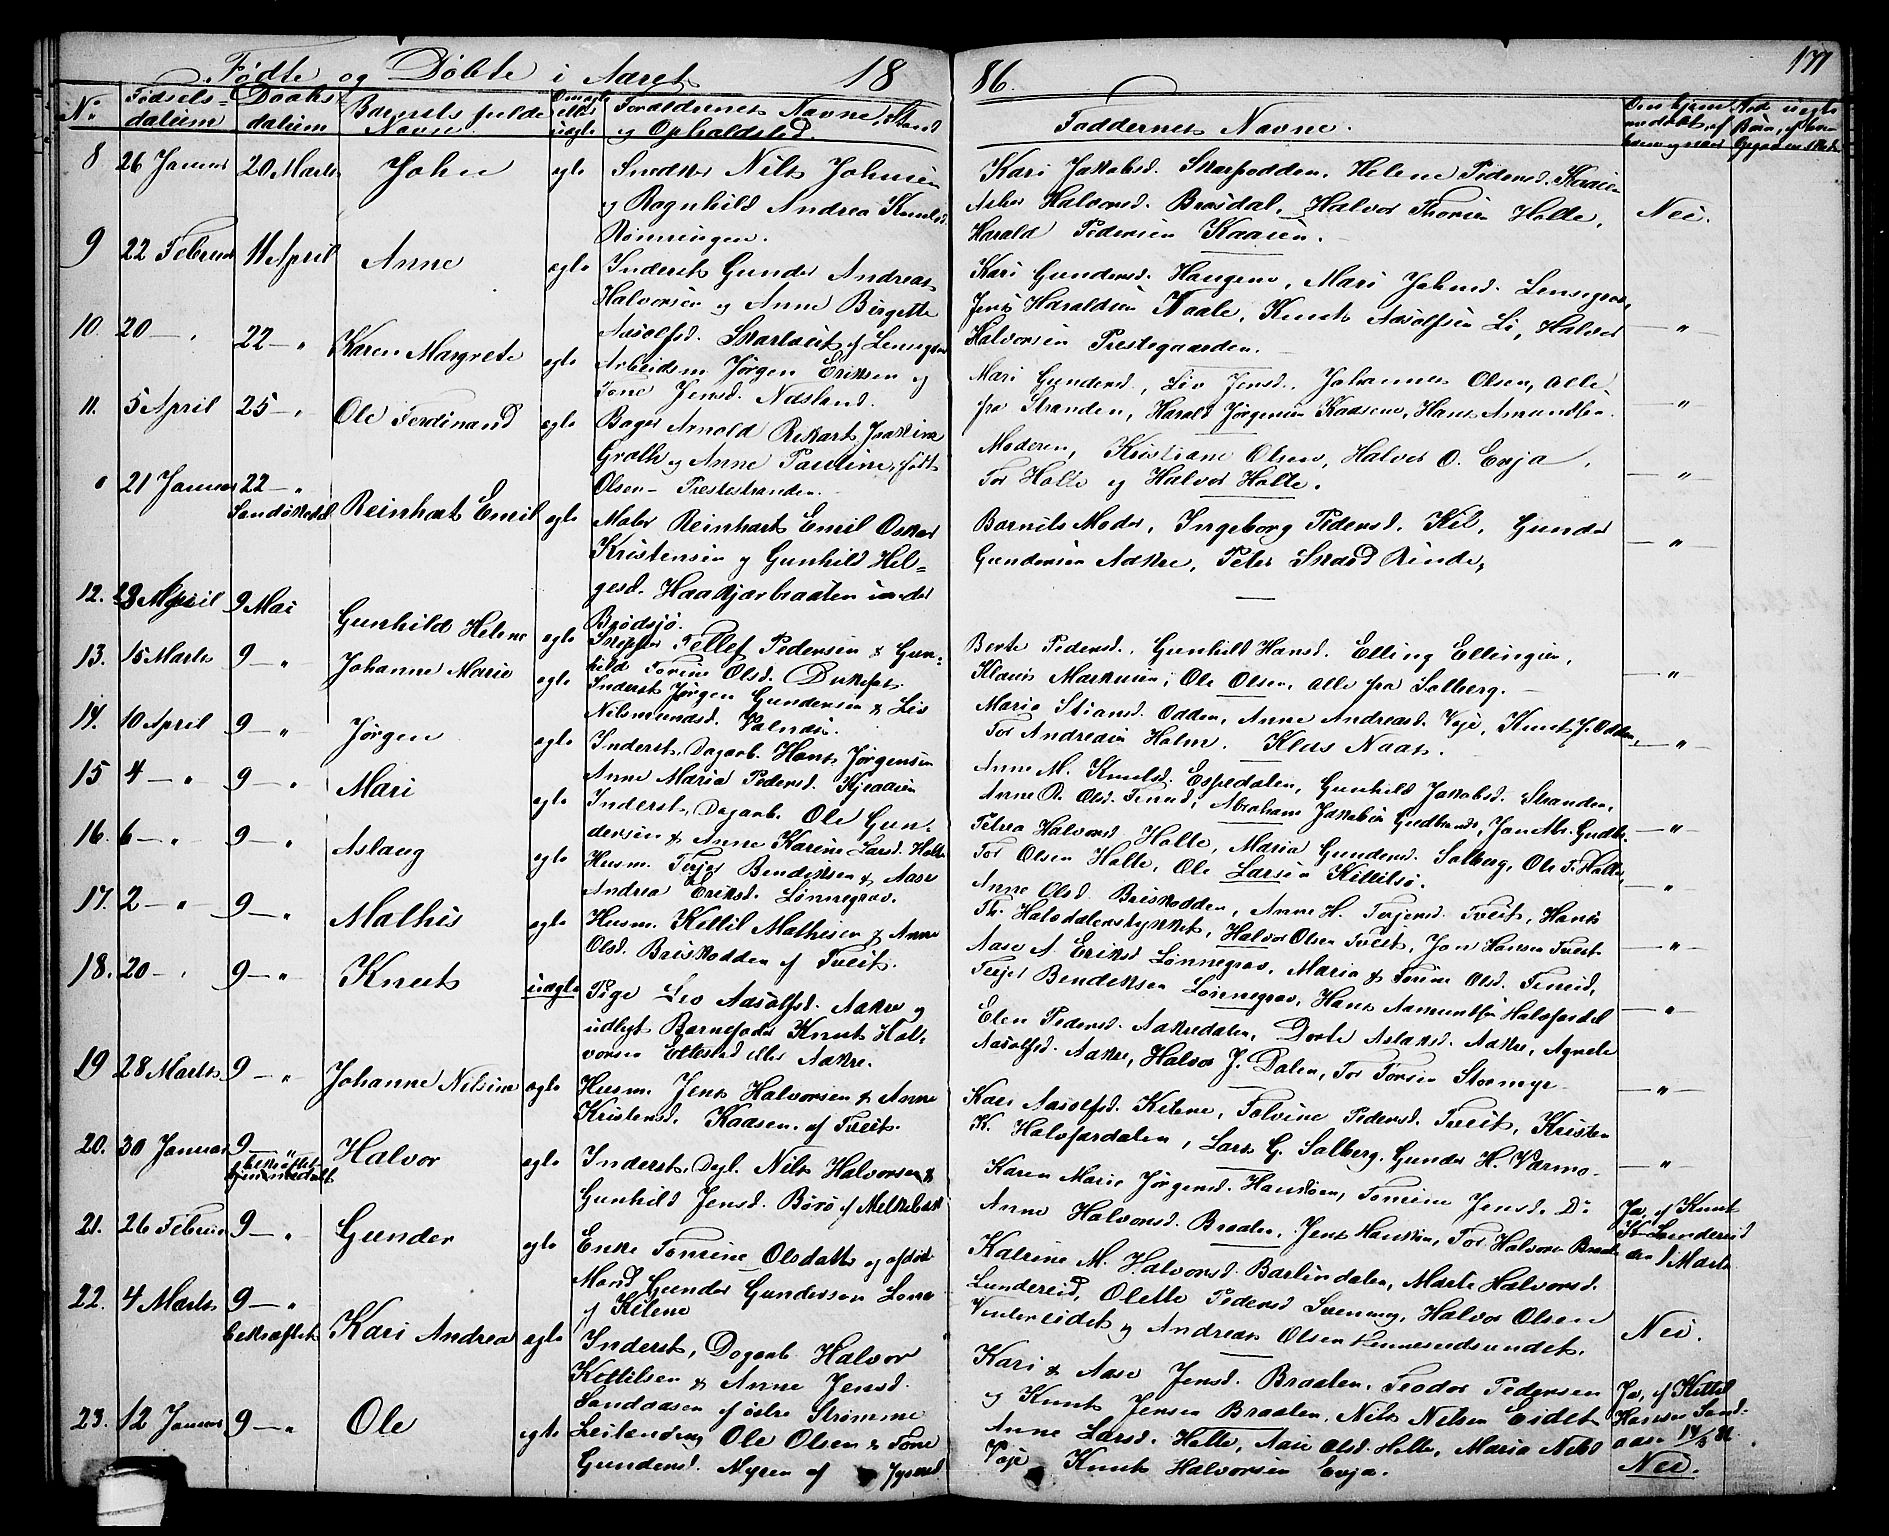 Fødte og Døbte i Aaret 18 86. 171
No Fødsels-datum Daabs datum Barnets fulde Navn Om ægte eller uægte Forældrenes Navne, Stand og Opholdsted. Faddernes Navne.
8 26 Januar 20 Marts John ægte Smedker Nils Johnsen
og Ragnhild Andrea Knudsd.
Rømningen.
Kari Jakobsd. Skarpodden, Helene Pedersd. Kaasen
Halvorsd. Brosdal, Halvor Thorsen Holte,
Harald Pedersen Kaasen. Nei.
9 22 Februar 11 April Anne ægte Inderst Gunder Andreas
Halvorsen og Anne Birgette
Aasolfsd. Skartveit af Lensegrav
Kari Gundersd. Haugene, Mari Johnsd. Lensegrav,
Jens Haraldsen Naale, Knut Aasolfsen Li, Halvor
Halvorsen Prestegaarden. — " —
10. 20 — " 22 — " Karen Margrete ægte Arbeidsm Jørgen Eriksen og
Tone Jensd. Næsland.
Mari Gundersd., Liv Jensd., Johannes Olsen, alle
fra Stranden, Harald Jørgensen Kaasene, Hans Amundsen. — " —
11. 5 April 25 — " Ole Ferdinand ægte Bager Arnold Rikart Joakim
Groth og Anne Pauline, født
Olsen — Prestestranden.
Moderen, Kristiane Olsen, Halvor O. Evja,
Tor Holte og Halvor Holte. — " —
21 Januar 22 — " Sandøkedal Reinhart Emil ægte Maler Reinhart Emil Oskar
Kristensen og Gunhild Hel=
gesd. Haakjærbraaten under
Brødsjø.
Barnets Moder, Ingeborg Pedersd. Kil, Gunder
Gundersen Aakre, Peter Skaad Rinde, — " —
12. 28 April 9 Mai Gunhild Helene ægte Skipper Tellef Pedersen & Gun=
hild Torine Olsd.
Berte Pedersd., Gunhild Hansd. Elling Ellingsen,
Klaus Markusen, Ole Olsen, alle fra Solberg. — " —
13. 15 Marts 9 — " Johanne Marie ægte Inderst Jørgen Gundersen & Liv
Nilsmundsd.
Marie Stiansd. Odden, Anne Andreasd. Veje, Knut J. Odden,
Tor Andreasen Holm. Klas Naas. — " —
14. 10 April 9 — " Jørgen ægte Inderst, Dagarb. Hans Jørgensen
Anne Maria Pedersd. Kjraasen
Anne M. Knutsd. Espedalen, Gunhild Jakobsd. Stranden,
Anne R. Olsd. Abraham Jakobsen Gudbrands, Jan Abr. — " —
15 4 — " 9 — " Mari ægte Inderst, Dagarb. Ole Gun-
dersen & Anne Karine Larsd. Holte
Petrea Halvorsd. Holte, Maria Gundersd. Solberg, Ole T. Holte,
Tor Olsen Holte, Ole Larsen Kittilsø. — " —
16. 6 — " 9 — " Aslaug ægte Husm. Terjer Bendiksen & Aase
Andrea Eriksd. Lønnegrav.
Anne Olsd. Briskodden, Anne H. Terjersd. Tveit, Hans
Th. Halvdalenstykket, Halvor Olsen Tveit, Jon Hansen Tveit — " —
17. 2 — " 9 — " Mathis ægte Husm. Kittil Mathisen & Anne
Olsd. Briskodden af Tveit.
Aase A Eriksd Lønnegrav, Maria & Torine Olsd.
Terjer Bendiksen Lønnegrav, Hans Aamundsen — " —
18. 20 — " 9 — " Knut uægte Pige Liv Aasolfsd. Aakre og
udlagt Barnefader Knut Hal-
vorsen Eltested eller Aakre.
Elen Pedersd. Aakredalen, Dorte Aslaksd. Aakre, Agnete
Aasolfsd. Aakre, Halvor J. Dalen, Tor Torsen Stormyr — " —
19 28 Marts 9 — " Johanne Nilsine ægte Husm. Jens Halvorsen & Anne
Kristensd. Kaasen. af Tveit.
Kari Aasolfsd. Kilene, Tolvine Pedersd. Tveit, Kristen
K. Halvfardalen, Lars G. Solberg. Gunder H. Værmo. — " —
20. 30 Januar 9 — " bekræftet hjemmedøbt Halvor ægte Inderst, Dagl. Nils Halvorsen &
Gunhild Jensd. Børø af Melkebæk
Karen Marie Jørgensd. Hanskøen, Tomine Jensd. Do
Anne Halvorsd. Braaten, Jens Hansen, Tor Halvorsen Braaten Ja, af Knut
Lundereid
den 1 Marts
21. 26 Februar 9 — " Gunder ægte Enke Tomine Olsdatt og afdød
Mand Gunder Gundersen Lone
af Kilene
Katrine M. Halvorsd. Barlindalen, Marte Halvorsd.
Lundereid, Olette Pedersd Svenung, Halvor Olsen
Vintereidet og Andreas Olsen Hennesundsundet. Nei.
22. 4 Marts 9 — " bekræftet Kari Andrea ægte Inderst, Dagarb. Halvor
Kittilsen & Anne Jensd.
Sandaasen af østre Strømme
Kari & Aase Jensd. Braaten, Teodor Pedersen
og Knut Jensen Braaten, Nils Nilsen Eidet Ja, af Kittel
Hansen Sand-
aas. 14/3 86.
23. 12 Januar 9 — " Ole ægte Leilending Ole Olsen & Tone
Gundersd. Myren af
Anne Larsd. Helle, Aase Olsd. Helle, Maria Nilsd
Veje Knut Halvorsen Evja. Nei.